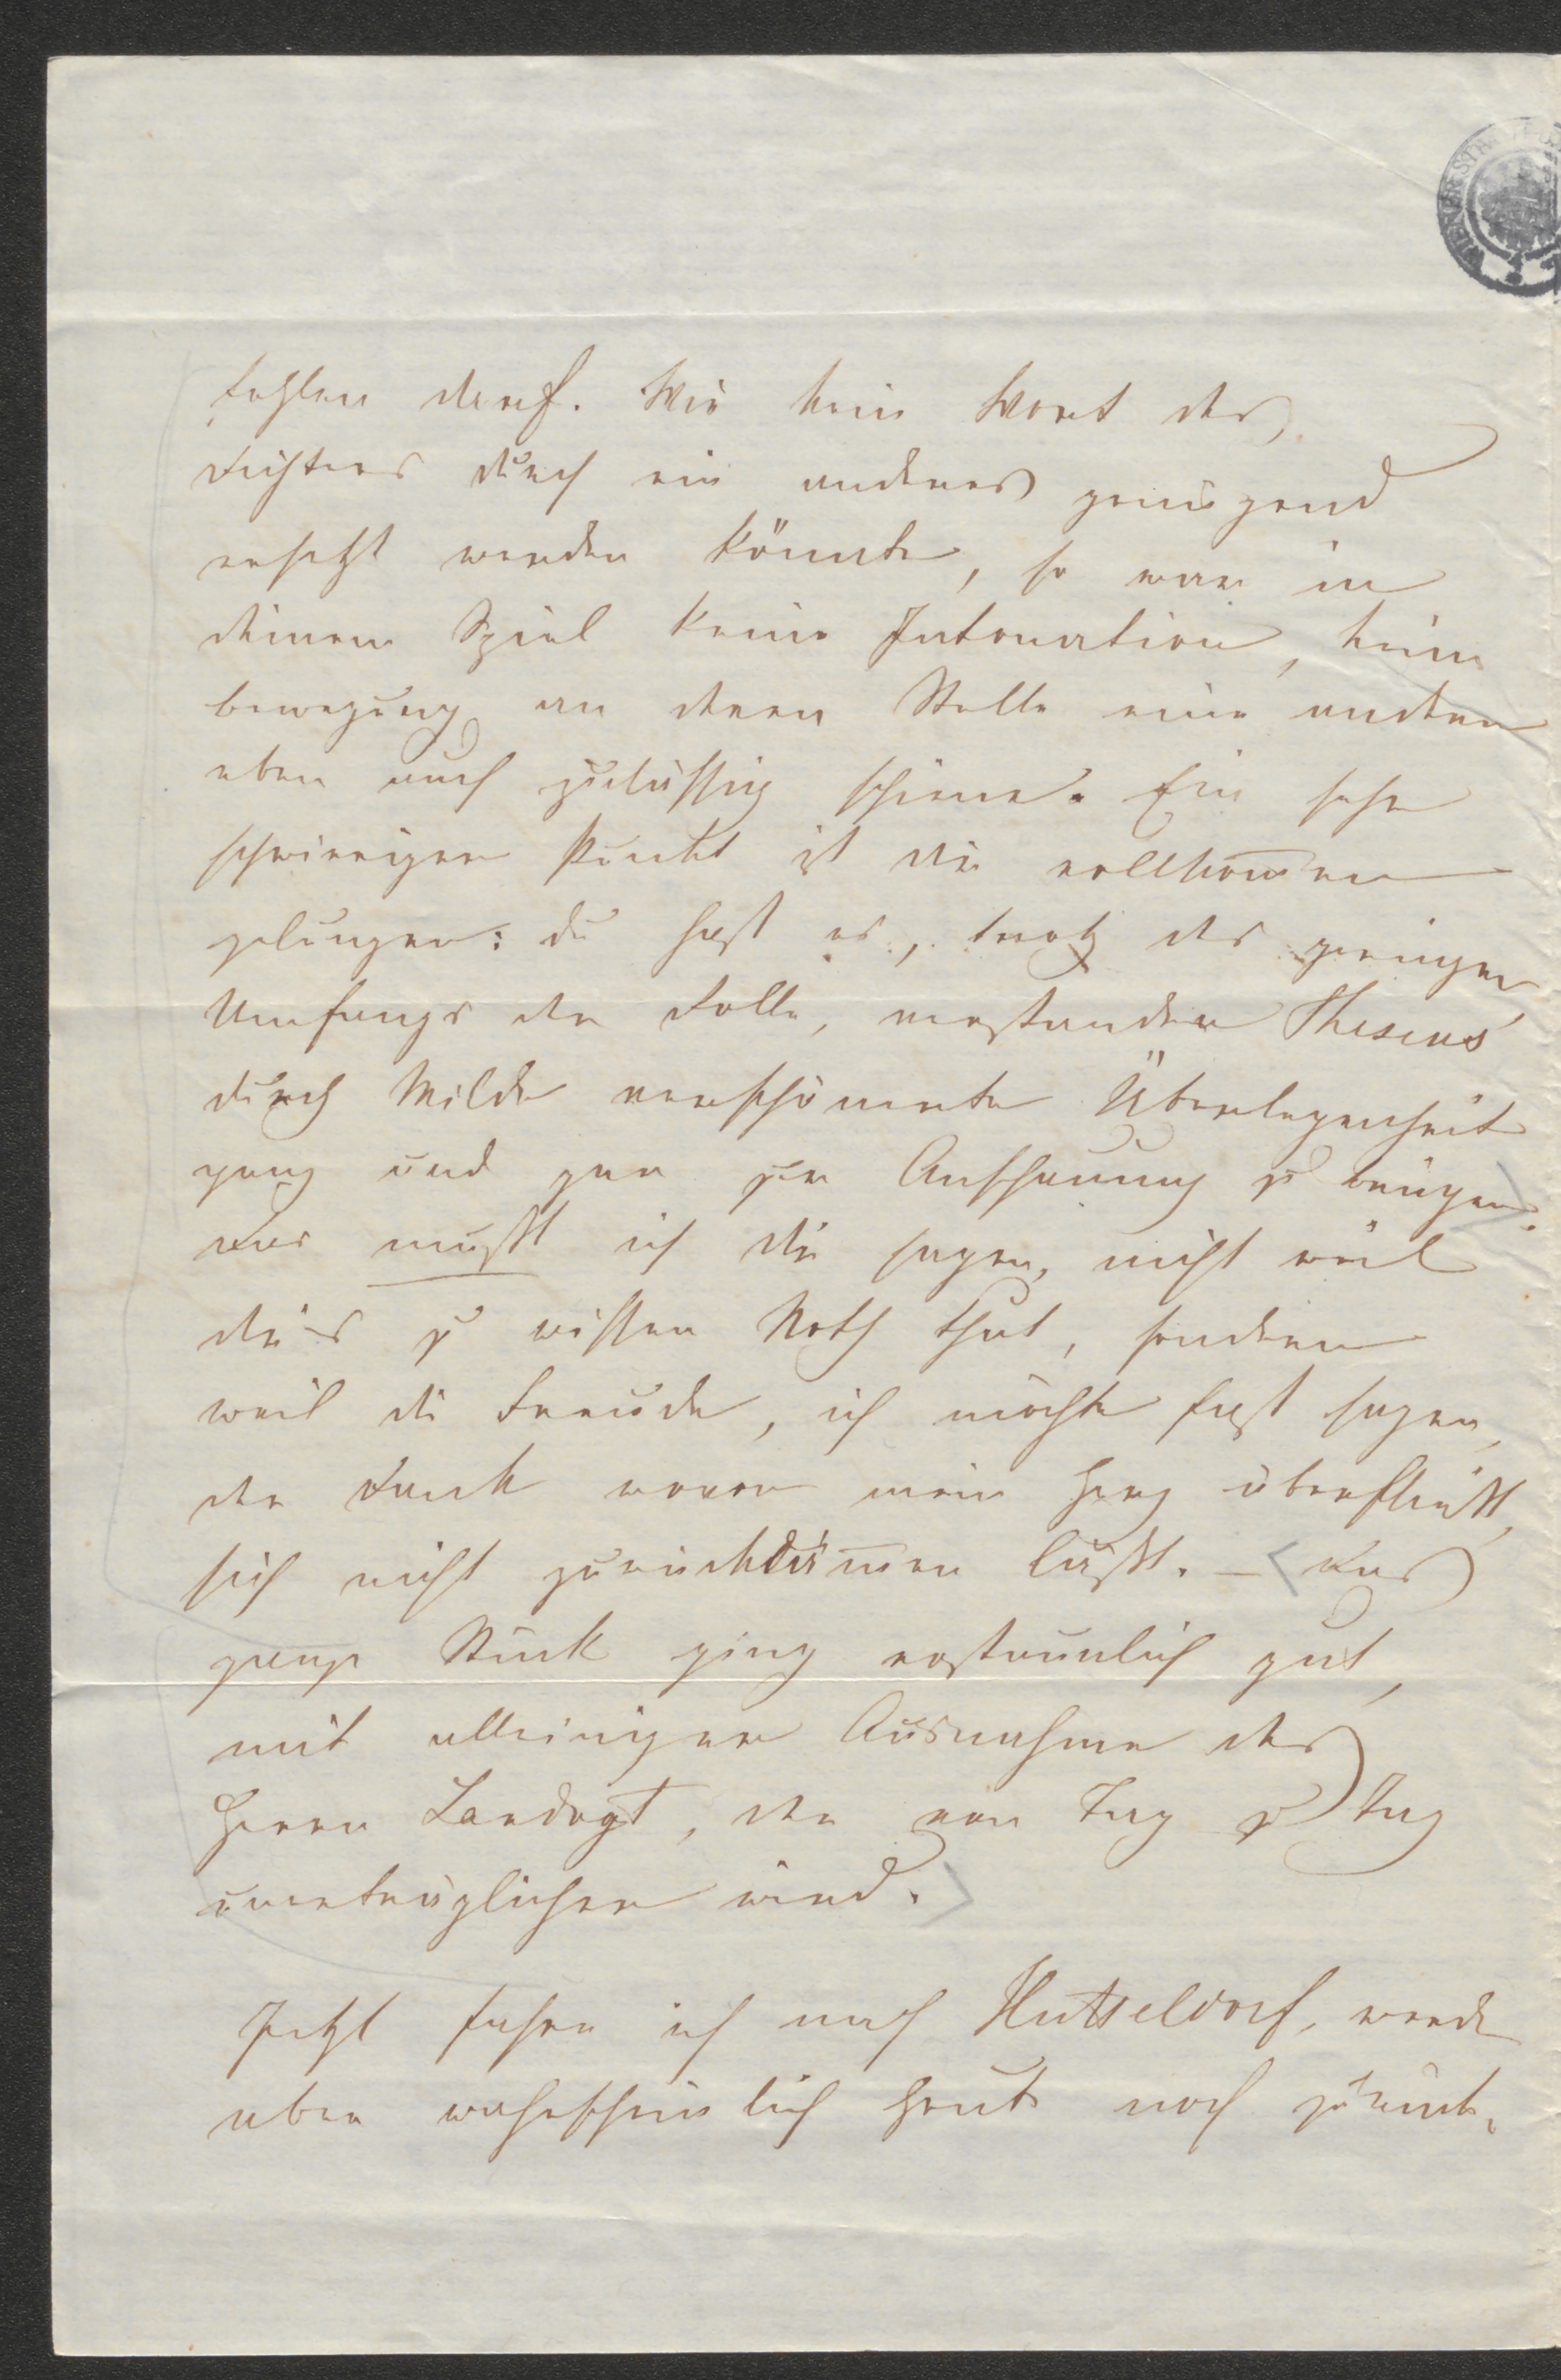 fehlen darf. Wie kein Wort des
Dichters durch ein anderes genügend
ersetzt werden könnte, so war in
deinem Spiel keine Intonation, keine
Bewegung an deren Stelle eine andere
eben auch zulässig schiene. Ein sehr
schwieriger Punkt ist dir vollkom̅en
gelungen: du hast es, trotz des geringen
Umfangs der Rolle, verstanden Theseus
durch Milde verschönerte Überlegenheit
ganz und gar zur Anschauung zu bringen.
Das mußt ich dir sagen, nicht weil
dir's zu wissen Noth thut, sondern
weil die Freude, ich möchte fast sagen,
der Dank wovon mein Herz überfließt,
sich nicht zurückdäm̅en läßt. – Das
ganze Stück ging erstaunlich gut,
mit alleiniger Ausnahme des
Herrn Landvogt, der von Tag zu Tag
unerträglicher wird.
Jetzt fahre ich nach Hütteldorf, werde
aber wahrscheinlich heute noch zurück,